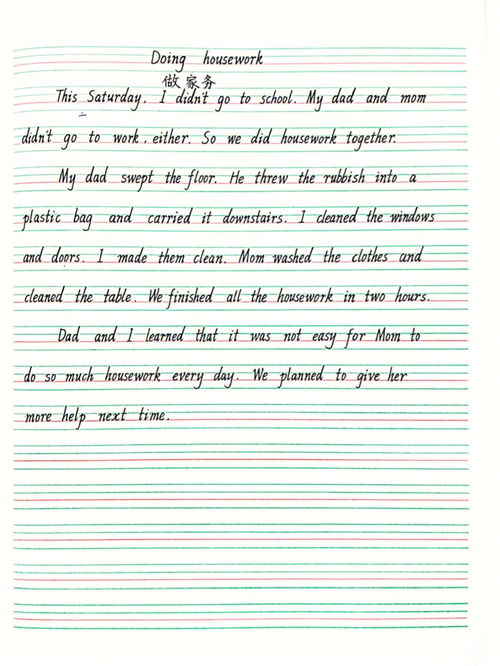 Doing housework
做家务
This Saturday, I didn't go to school. My dad and mom
didn't go to work, either. So we did housework together.
My dad swept the floor. He threw the rubbish into a
plastic bag and carried it downstairs. I cleaned the windows
and doors. I made them clean. Mom washed the clothes and
cleaned the table. We finished all the housework in two hours.
Dad and I learned that it was not easy for Mom to
do so much housework every day. We planned to give her
more help next time.